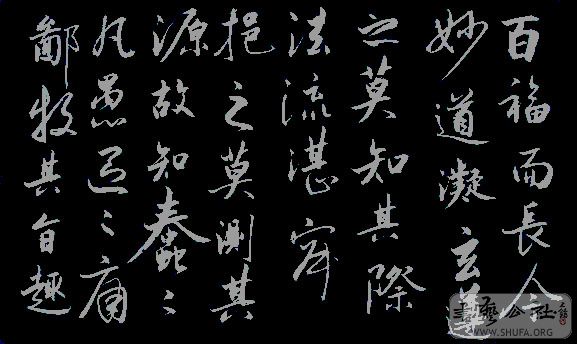 百福而長今
妙道凝玄遵
之莫知其際
法流湛寂
挹之莫測其
源故知蠢〻
凡愚區〻庸
鄙投其旨趣
書藝公社
WWW.SHUFA.ORG